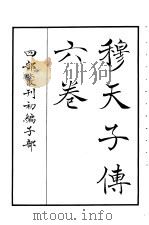 穆天子傳
六卷
四部叢刊初編子部
mtoou.info